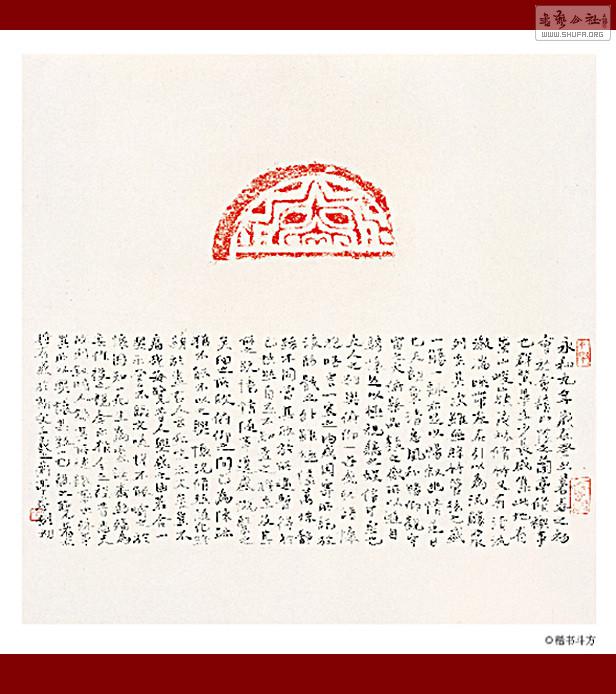 WWW.SHUFA.ORG
永和九年歲在癸丑暮春之初
會於會稽山陰之蘭亭脩禊事
也群賢畢至少長咸集此地有
崇山峻領茂林脩竹又有清流
激湍映帶左右引以為流觴曲
列坐其次雖無絲竹管弦之盛
一觴一詠亦足以暢敘幽情是日
也天朗氣清惠風和暢仰觀宇
宙之大俯察品類之盛所以遊目
騁懷足以極視聽之娛信可樂也
夫人之相與俯仰一世或取諸懷
抱悟言一室之內或因寄所託放
浪形骸之外雖趣舍萬殊靜
躁不同當其欣於所遇暫得於
己快然自足不知老之將至及其
所之既倦情隨事遷感慨係之
矣向之所欣俯仰之間已為陳跡
猶不能不以之興懷況脩短隨化終
期於盡古人云死生亦大矣豈不
痛哉每覽昔人興感之由若合一
契未嘗不臨文嗟悼不能喻之於
懷固知一死生為虛誕齊彭殤為
妄作後之視今亦猶今之視昔悲夫
故列敘時人錄其所述雖世殊事
異所以興懷其致一也後之覽者亦
將有感於斯文
©楷书斗方